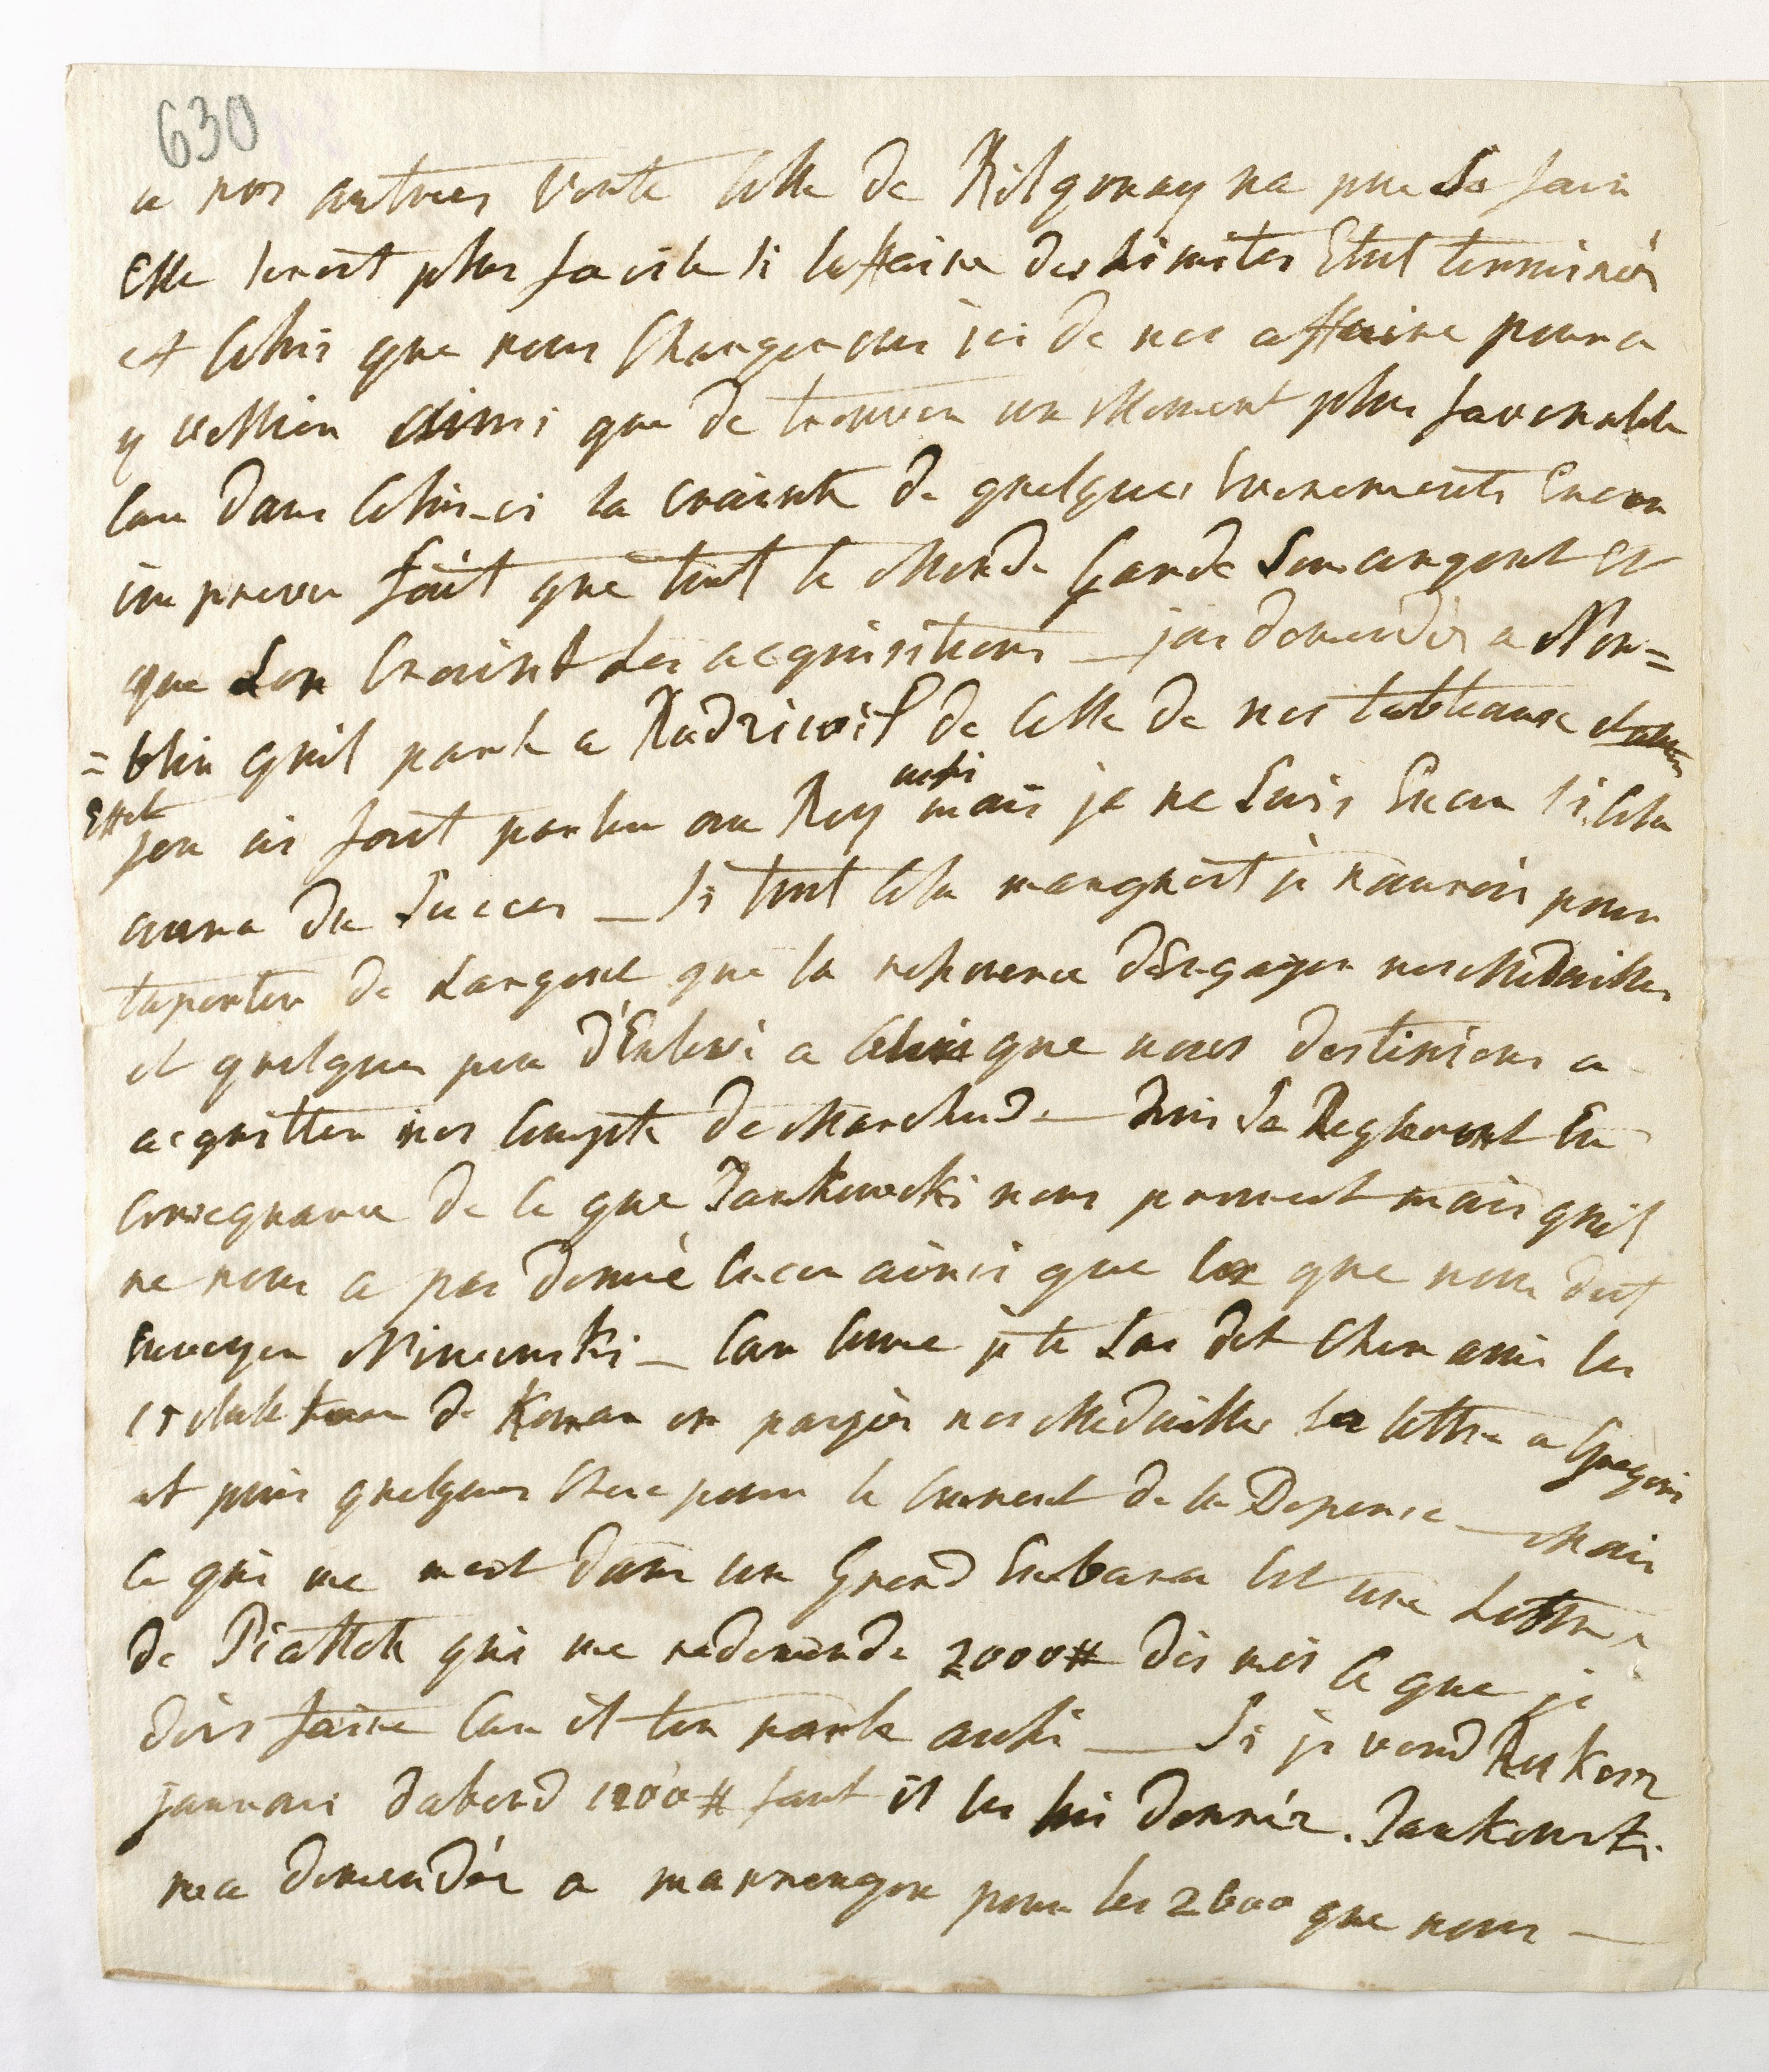 630
a nos autres vente Celle de Rilgonay na pue Se faire
Elle seroit plus facile si laffaire des Limites Etoit terminér
et Celui que nous Chargerons ici de nos affaire poura
y veillier ainsi que de trouver un Moment plus favorable
Car dans Celui-ci la crainte de quelques Evenements Encor
imprevu fait que tout le Monde Garde Son argent et
que Lon Craint Les acquisitions — jai demandér a Nor=
=blin quil parle a Radziwił de Celle de nos tableaux et
Effet
jen ai fait parler au Roy aussi mais je ne Suis Encor si Cela
aura du Succes — Si tout Cela manquoit je naurois pour
taporter de Largent que la resource dEngager nos Medailles
et quelque peu d'Enlevé a Celui que nous destinions a
acquitter nos Compte de Marchand — Puis Se Reglervont En
Consequance de Ce que Jankowski nous promest mais quil
ne nous a pas donné Encor ainsi que Ceux que nous doit
Envoyer Niniewski — Car Come je te Lai dit Cher ami les
15 Mille de Kowan on payér nos Medailles la lettre a Gregoire
et puis quelques Chose pour le Courent de la Depense — Mais
Ce qui me mest dans un Grand Embaras Est une Lettre
de Piattoli qui me redemende 2000# dis moi Ce que je
dois faire Car il ten parle aussi — Si je vend Rukow
jaurois dabord 1200# faut il les lui donnér. Jankowski
ma demendér a marrenger pour les 2600 que nous —